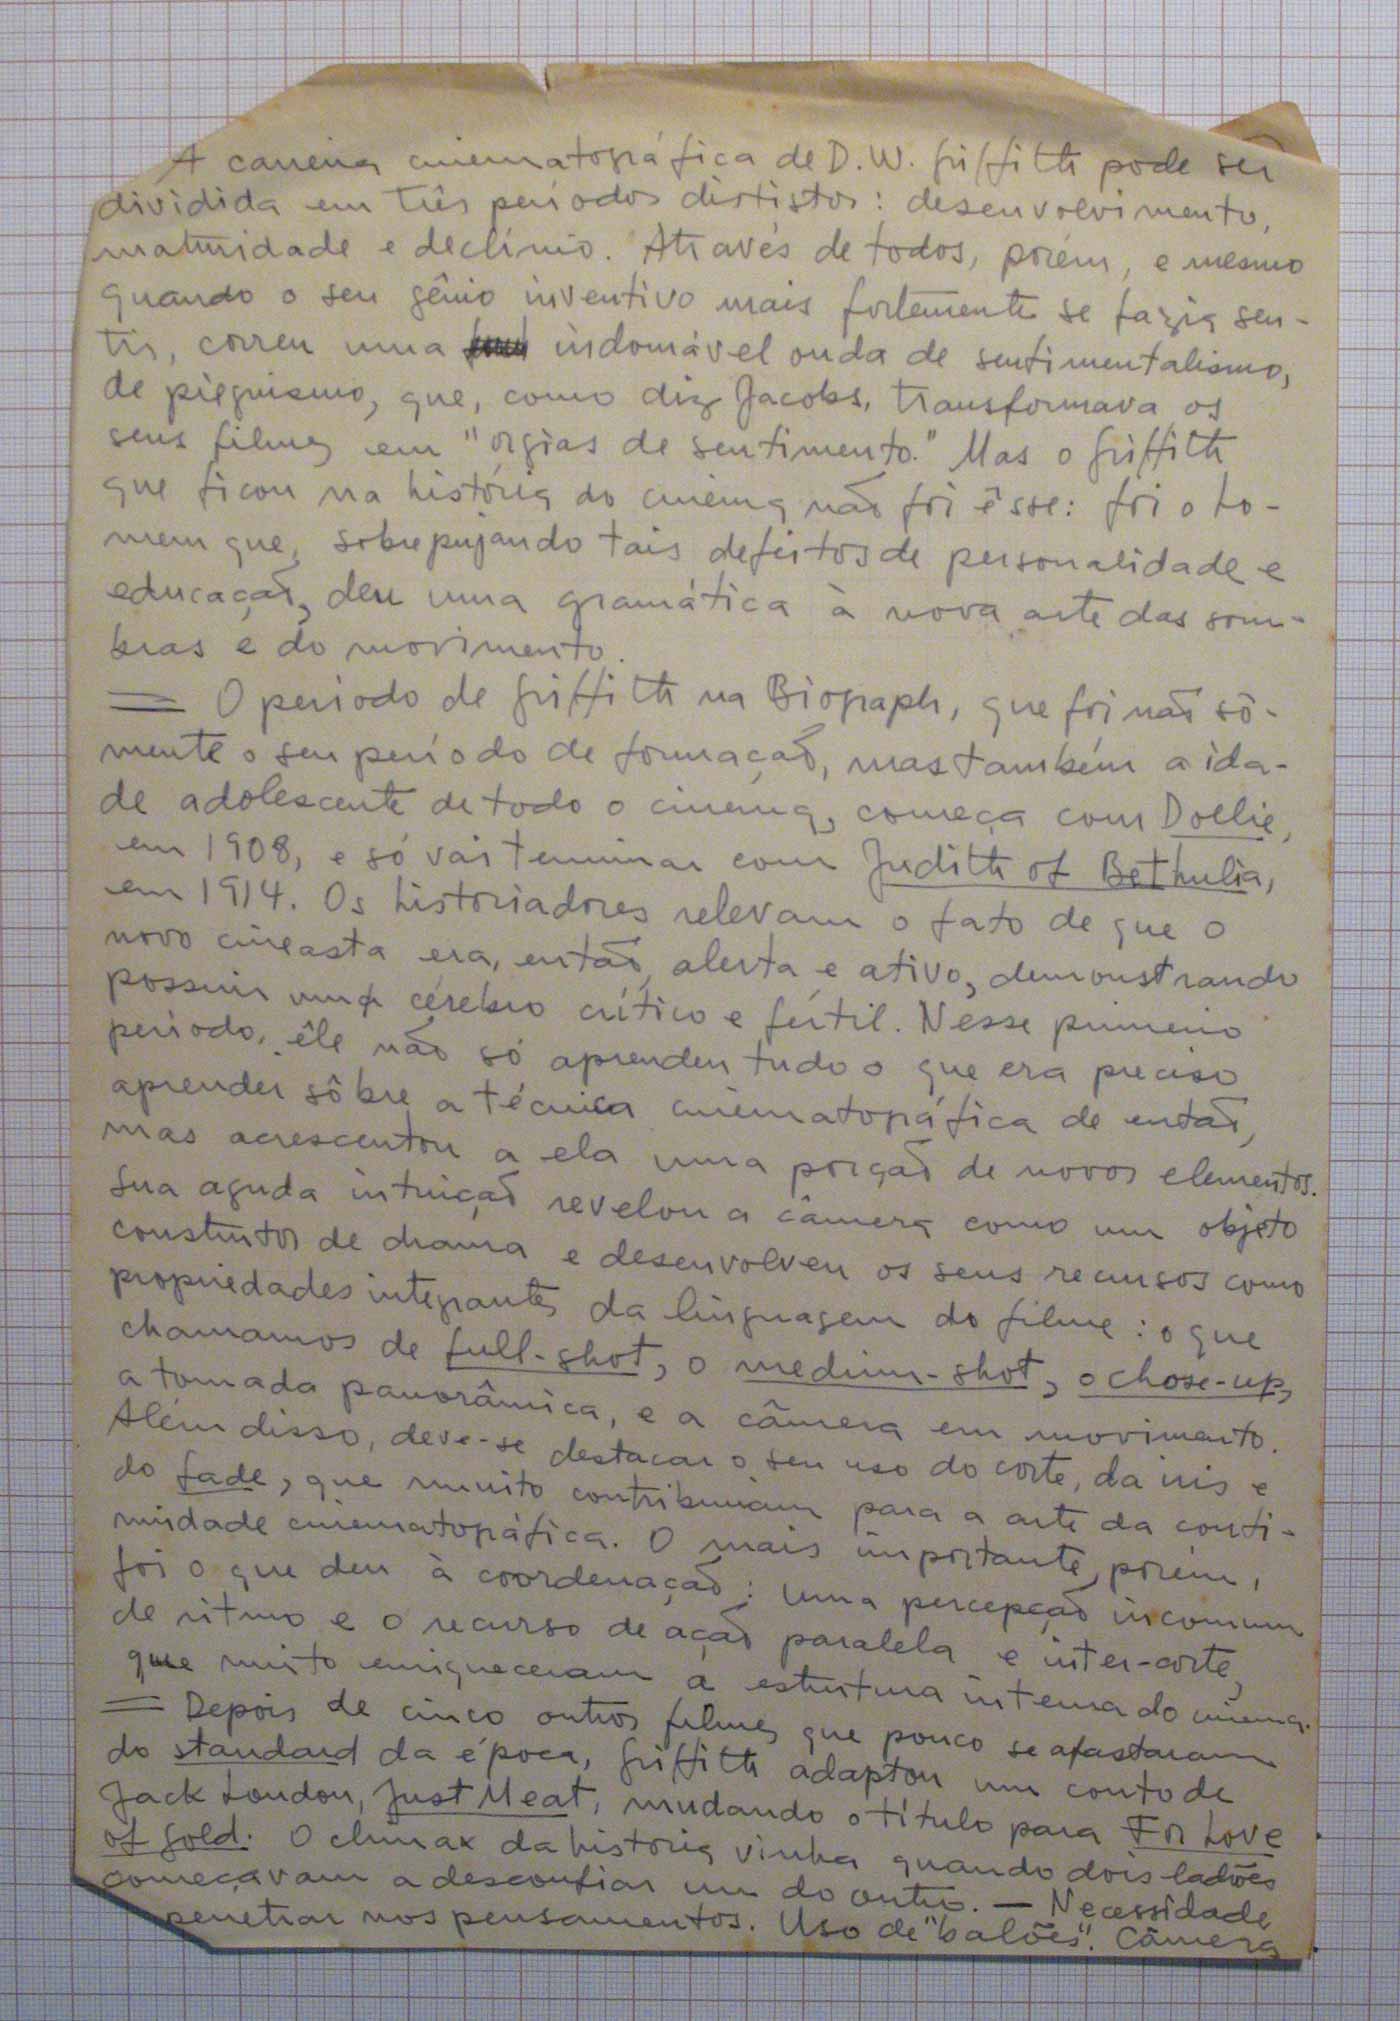 A carreira cinematográfica de D.W. Griffith pode ser
dividida em três períodos dististos: desenvolvimento,
maturidade e declínio. Através de todos, porém, e mesmo
quando o seu gênio inventivo mais fortemente se fazia sen-
tir, correu uma indomável onda de sentimentalismo,
de pieguismo, que, como diz Jacobs, transformava os
seus filmes em "orgias de sentimento." Mas o Griffith
que ficou na história do cinema não foi êsse: foi o ho-
mem que, sobrepujando tais defeitos de personalidade e
educação, deu uma gramática à nova arte das som-
bras e do movimento.
= O período de Griffith na Biograph, que foi não sò-
mente o seu período de formação, mas também a ida-
de adolescente de todo o cinema, começa com Dollie,
em 1908, e só vai terminar com Judith of Bethulia,
em 1914. Os historiadores relevam o fato de que o
novo cineasta era, então, alerta e ativo, demonstrando
possuir um cérebro crítico e fértil. Nesse primeiro
período, êle não só aprendeu tudo o que era preciso
aprender sôbre a técnica cinematográfica de então,
mas acrescentou a ela uma porção de novos elementos.
Sua aguda intuição revelou a câmera como um objeto
construtor de drama e desenvolveu os seus recursos como
propriedades integrantes da linguagem do filme: o que
chamamos de full-shot, o medium-shot, o chose-up,
a tomada panorâmica, e a câmera em movimento.
Além disso, deve-se destacar o seu uso do corte, da iris e
do fade, que muito contribuiam para a arte da conti-
nuidade cinematográfica. O mais importante, porém,
foi o que deu à coordenação: uma percepção incomum
de ritmo e o recurso de ação paralela e inter-corte,
que muito enriqueceram a estrutura interna do cinema.
= Depois de cinco outros filmes que pouco se afastaram
do standard da época, Griffith adaptou um conto de
Jack London, Just Meat, mudando o título para For Love
of Gold. O climax da história vinha quando dois ladrões
começavam a desconfiar um do outro. — Necessidade
penetrar nos pensamentos. Uso de "balões". Câmera